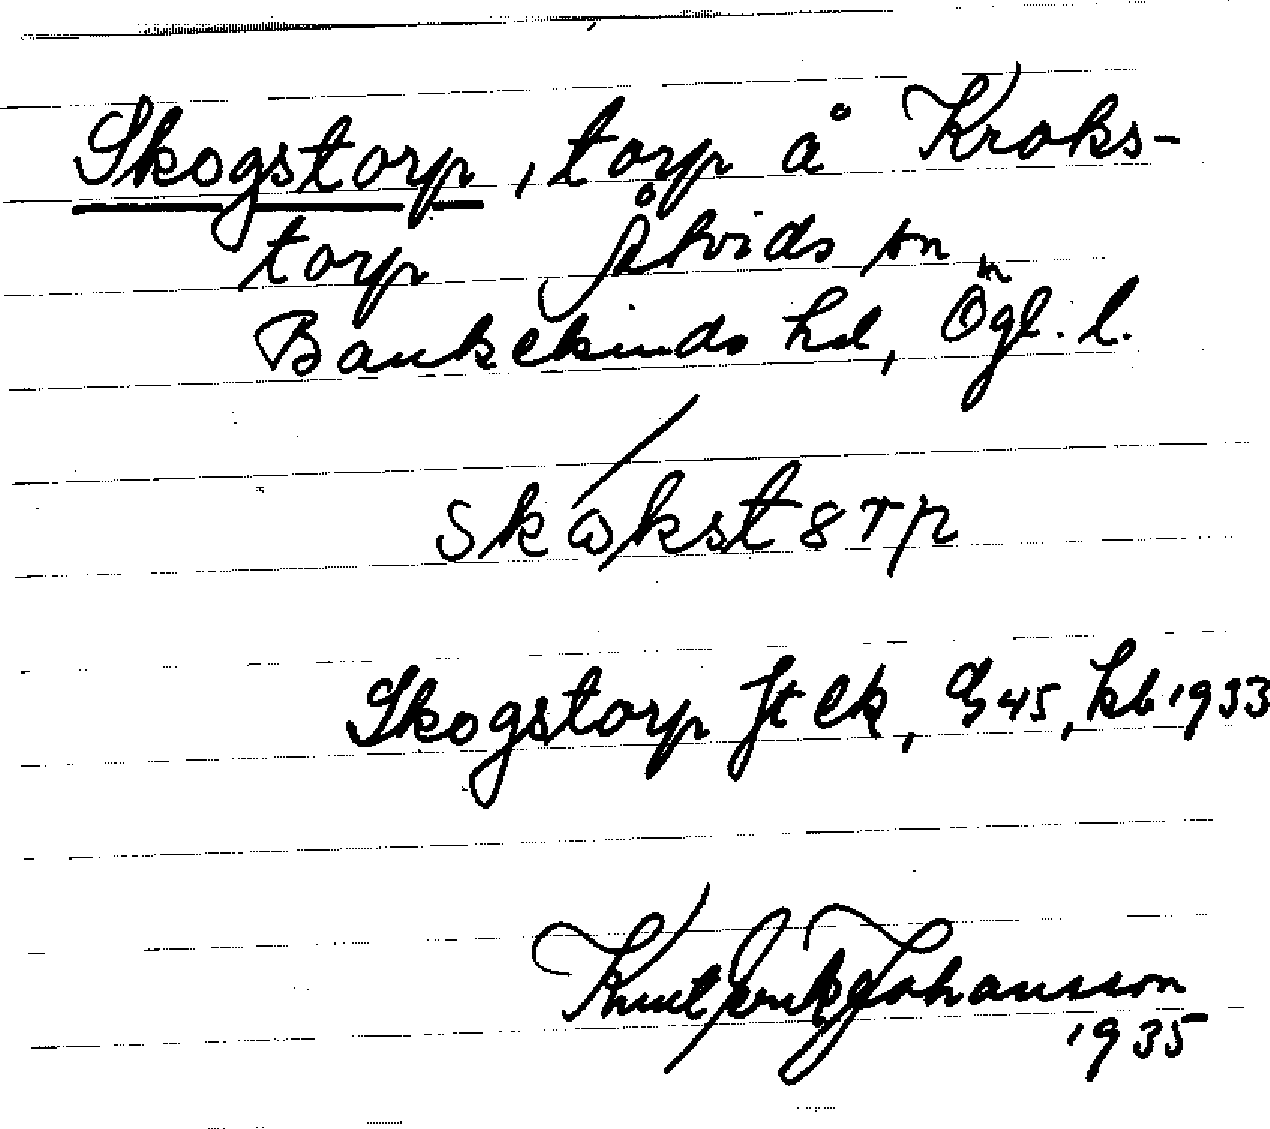 Skogstorp, torp å Kroks-
torp Åtvids sn
Bankekinds hd, Ögl. l.
Skogstorp Jt ek, G 45, kb 1933
Knut Erik Johansson
1935